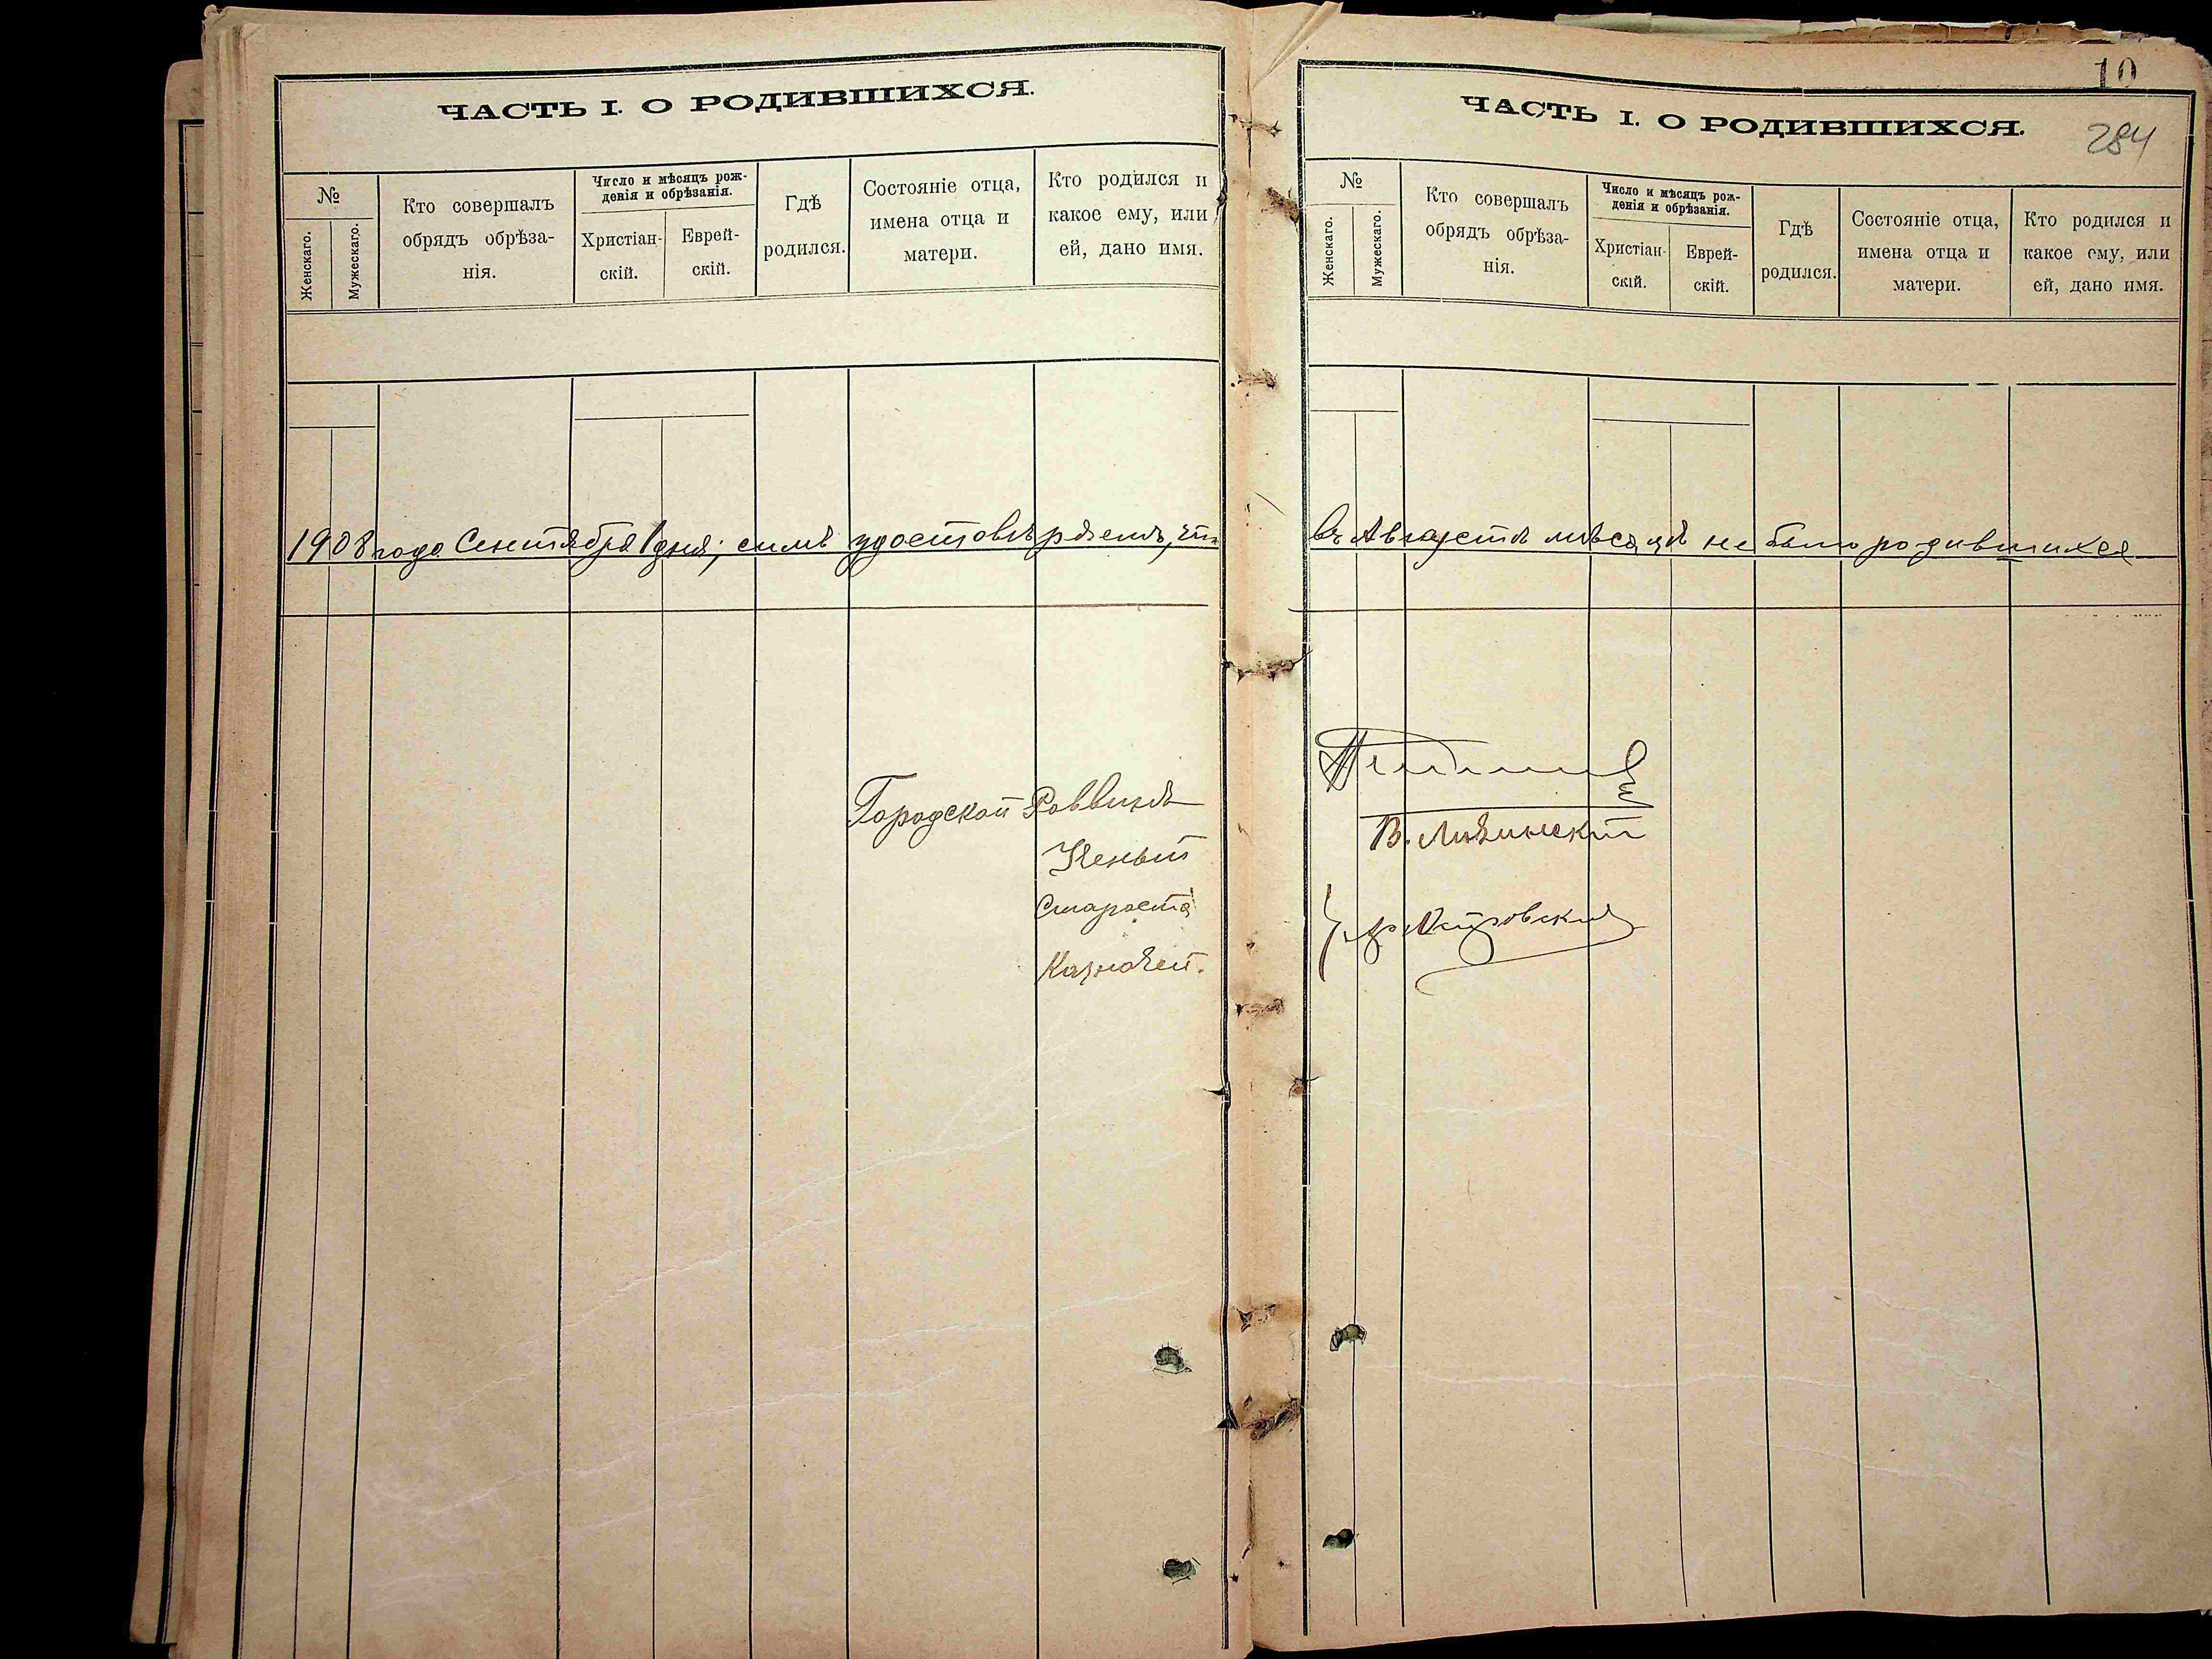 ЧАСТЬ I. О РОДИВШИХСЯ.
№
Женскаго.
Мужескаго.
Кто совершалъ
обрядъ обрѣза-
нія.
Число и мѣсяцъ рож-
денія и обрѣзанія.
Христіан-
скій.
Еврей-
скій.
Гдѣ
родился.
Состояніе отца,
имена отца и
матери.
Кто родился и
какое ему, или
ей, дано имя.
1908 года Сентября 1 дня; симъ удостовѣряемъ, что
Городской Раввинъ
Ученый
Староста
Казначей.
10
284
ЧАСТЬ I. О РОДИВШИХСЯ.
№
Женскаго.
Мужескаго.
Кто совершалъ
обрядъ обрѣза-
нія.
Число и мѣсяцъ рож-
денія и обрѣзанія.
Христіан-
скій.
Еврей-
скій.
Гдѣ
родился.
Состояніе отца,
имена отца и
матери.
Кто родился и
какое ему, или
ей, дано имя.
въ Августѣ мѣсяцѣ не было родившихся
В.